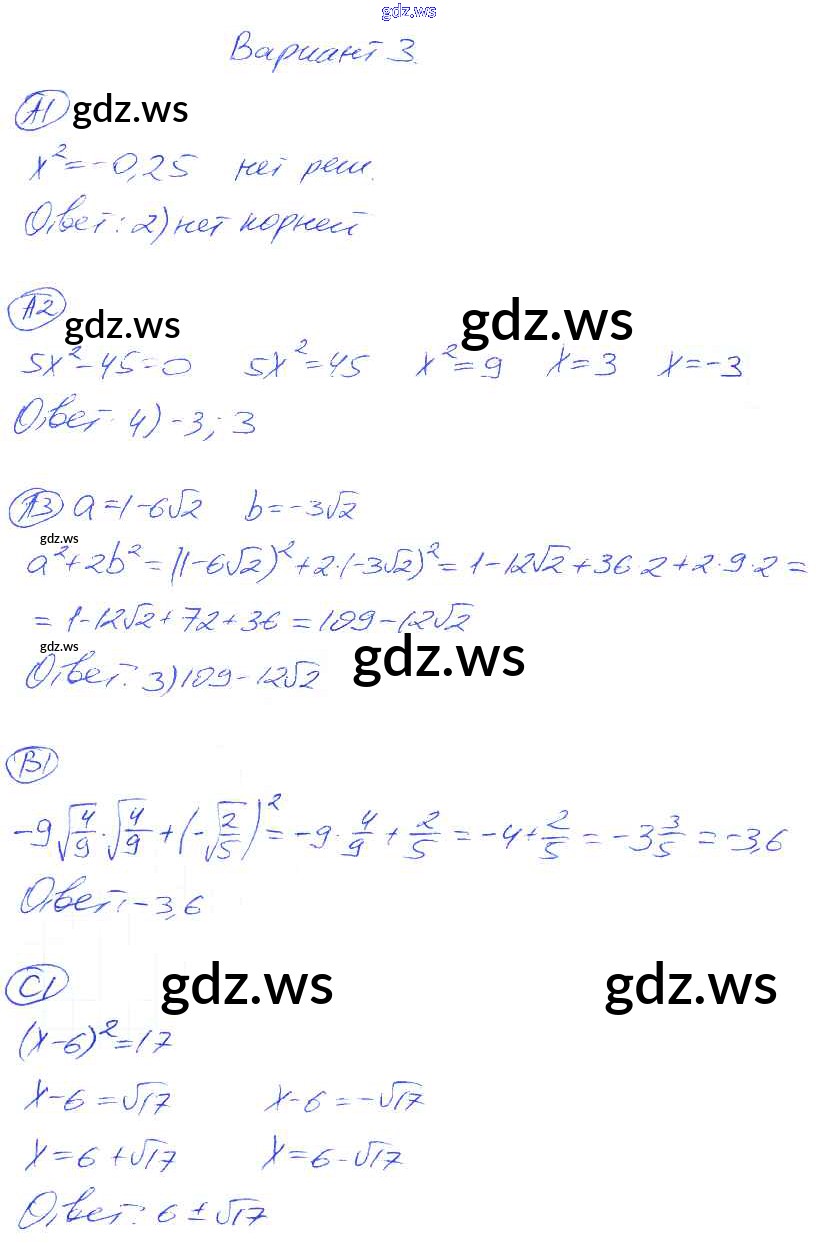 gdz.ws
Вариант 3.
А1 gdz.ws
x² = -0,25 нет реш.
Ответ: 2) нет корней
А2 gdz.ws gdz.ws
5x² - 45 = 0 5x² = 45 x² = 9 x = 3 x = -3
Ответ: 4) -3; 3
А3 a = 1 - 6√2 b = -3√2
gdz.ws
a² + 2b² = (1 - 6√2)² + 2·(-3√2)² = 1 - 12√2 + 36·2 + 2·9·2 =
= 1 - 12√2 + 72 + 36 = 109 - 12√2
gdz.ws gdz.ws
Ответ: 3) 109 - 12√2
В1
-9√4/9 · √4/9 + (-√2/5)² = -9 · 4/9 + 2/5 = -4 + 2/5 = -3 3/5 = -3,6
Ответ: -3,6
С1 gdz.ws gdz.ws
(x - 6)² = 17
x - 6 = √17 x - 6 = -√17
x = 6 + √17 x = 6 - √17
Ответ: 6 ± √17